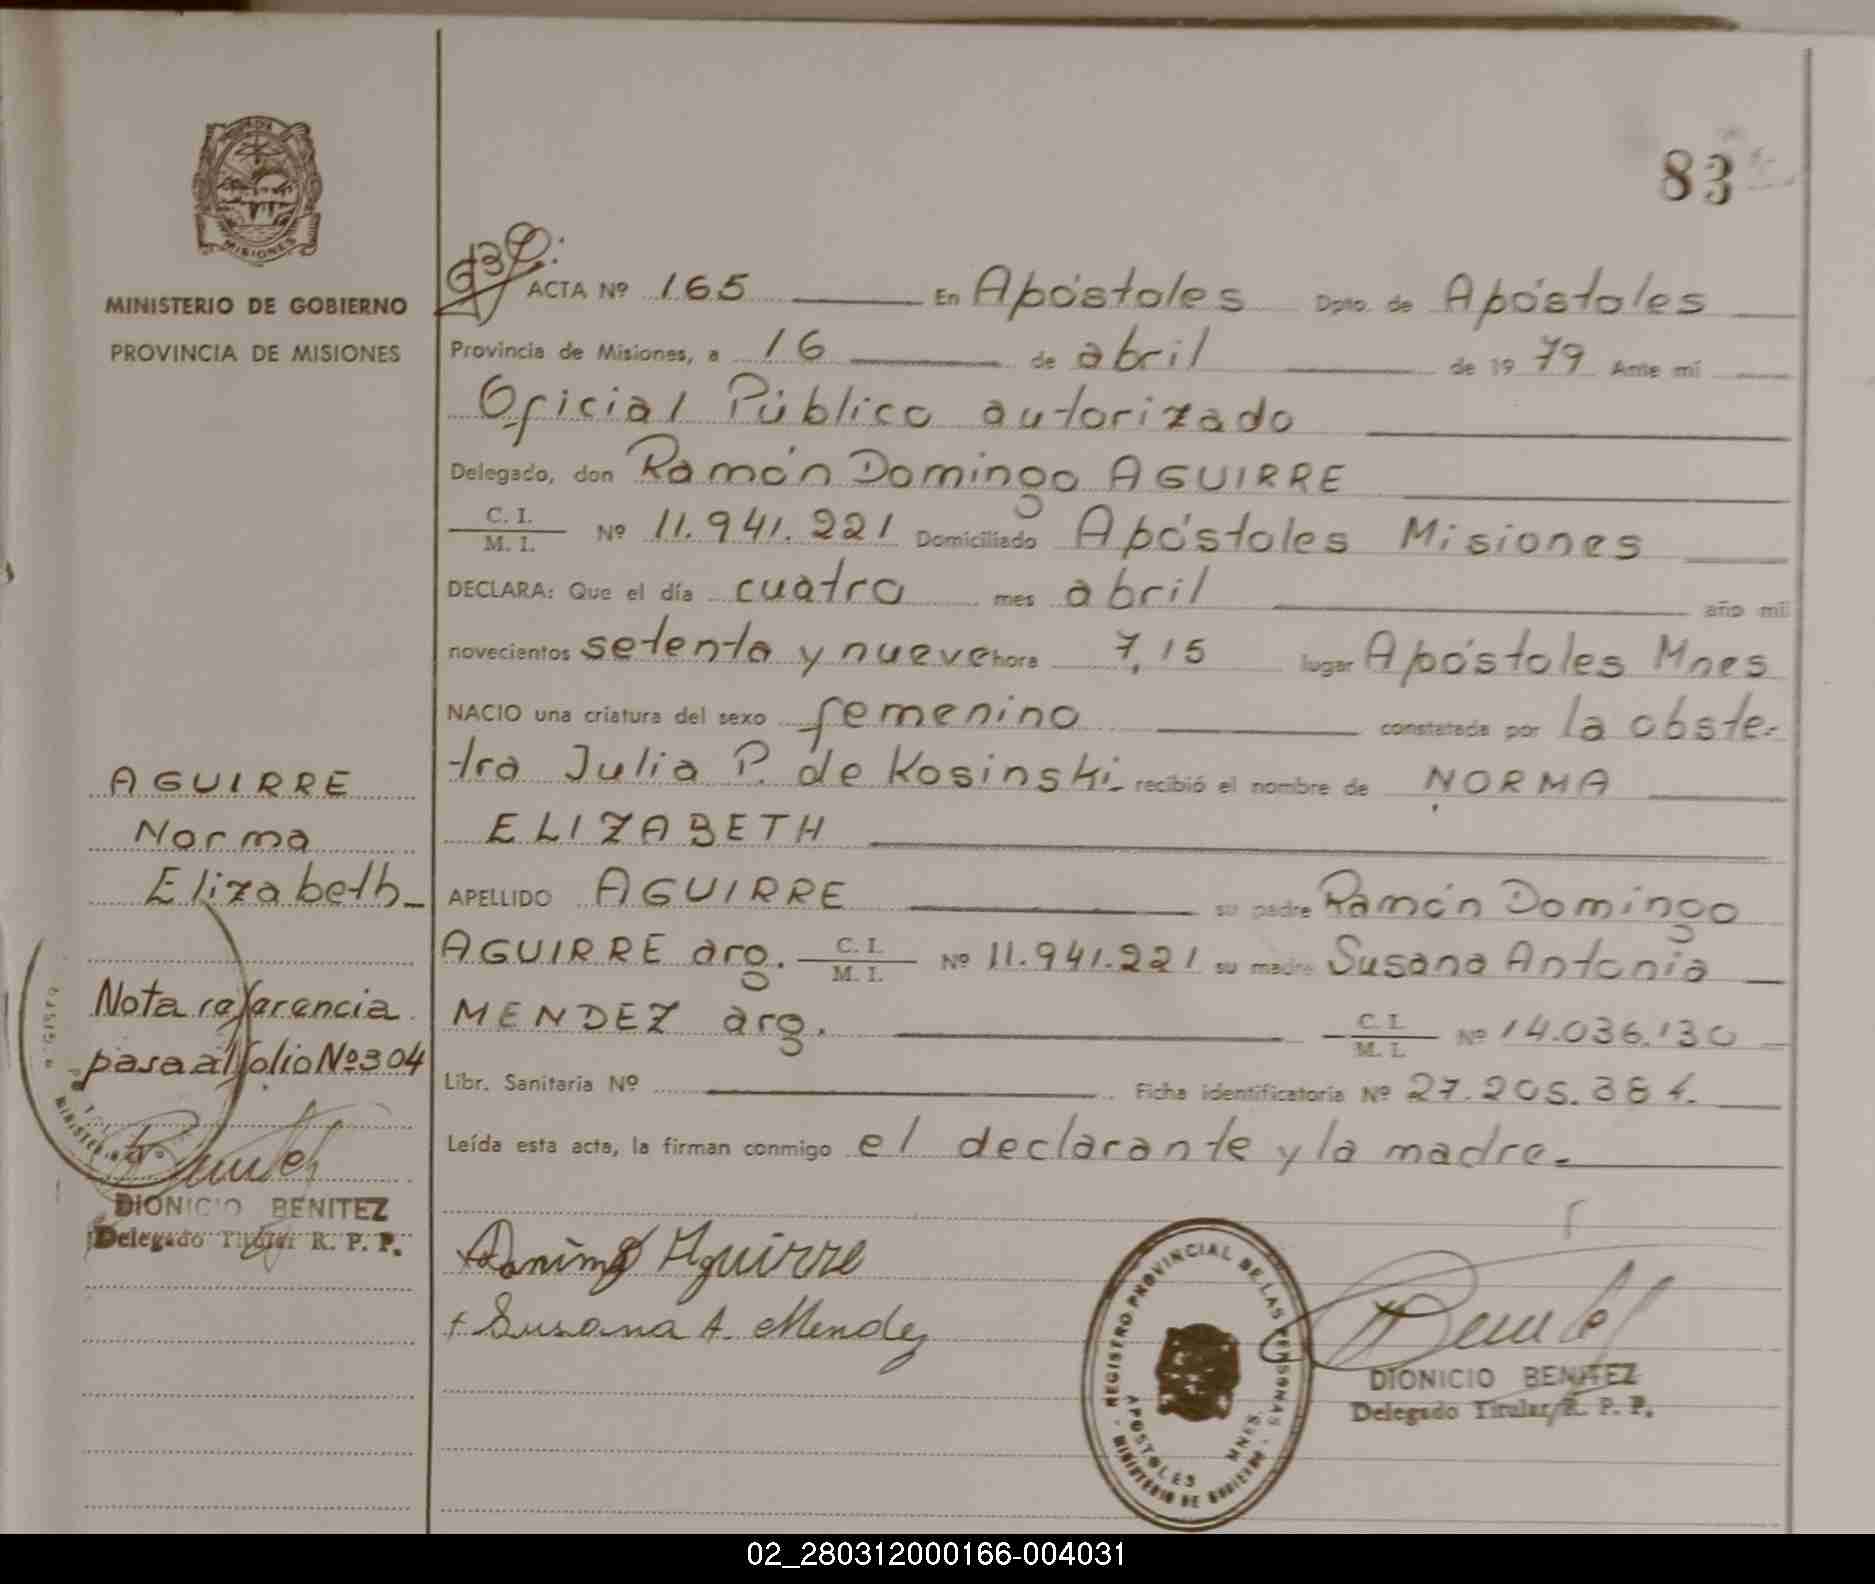 83
MISIONES
MINISTERIO DE GOBIERNO
PROVINCIA DE MISIONES
ACTA Nº 165 En Apóstoles Dpto. de Apóstoles
Provincia de Misiones, a 16 de abril de 1979 Ante mí
Oficial Público autorizado
Delegado, don Ramón Domingo AGUIRRE
C. I.
M. I. Nº 11.941.221 Domiciliado Apóstoles Misiones
DECLARA: Que el día cuatro mes abril año mil
novecientos setenta y nueve hora 7,15 lugar Apóstoles Mnes
NACIO una criatura del sexo femenino constatada por la obste-
tra Julia P. de Kosinski recibió el nombre de NORMA
ELIZABETH
APELLIDO AGUIRRE su padre Ramón Domingo
AGUIRRE arg. C. I.
M. I. Nº 11.941.221 su madre Susana Antonia
MENDEZ arg. C. I.
M. I. Nº 14.036.130
Libr. Sanitaria Nº Ficha identificatoria Nº 27.205.384.
Leída esta acta, la firman conmigo el declarante y la madre.
AGUIRRE
Norma
Elizabeth
Nota referencia
pasa al folio Nº 304
DIONICIO BENITEZ
Delegado Titular R. P. P.
Aguirre
Susana A. Mendez
REGISTRO PROVINCIAL DE LAS PERSONAS
APOSTOLES MNES.
MINISTERIO DE GOBIERNO
DIONICIO BENITEZ
Delegado Titular R. P. P.
02_280312000166-004031